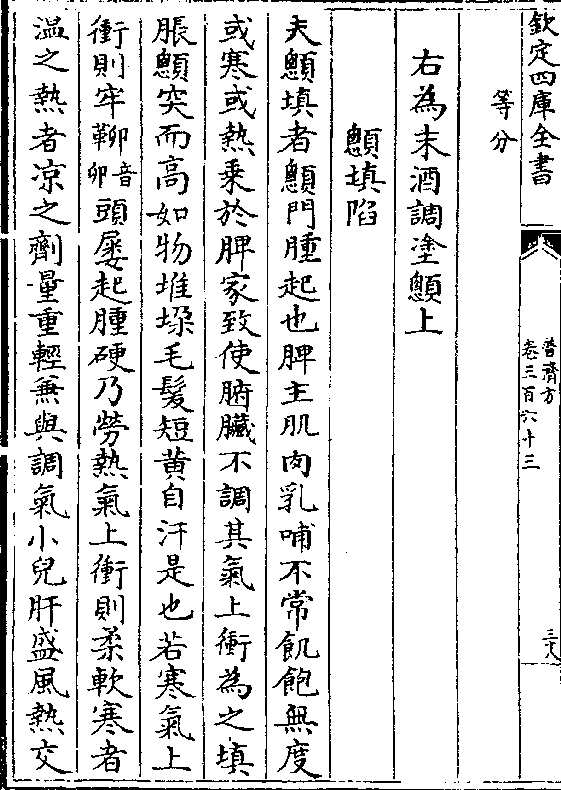 欽定四庫全書
普濟方
卷三百六十三
三六
等分
右為末酒調塗顖上
顖填陷
夫顖填者顖門腫起也脾主肌肉乳哺不常飢飽無度
或寒或熱乗於脾家致使腑臟不調其氣上衝為之填
脹顖突而高如物堆垜毛髮短黄自汗是也若寒氣上
衝則牢鞕音卯頭屢起腫硬乃勞熱氣上衝則柔軟寒者
温之熱者凉之劑量重輕兼與調氣小兒肝盛風熱交